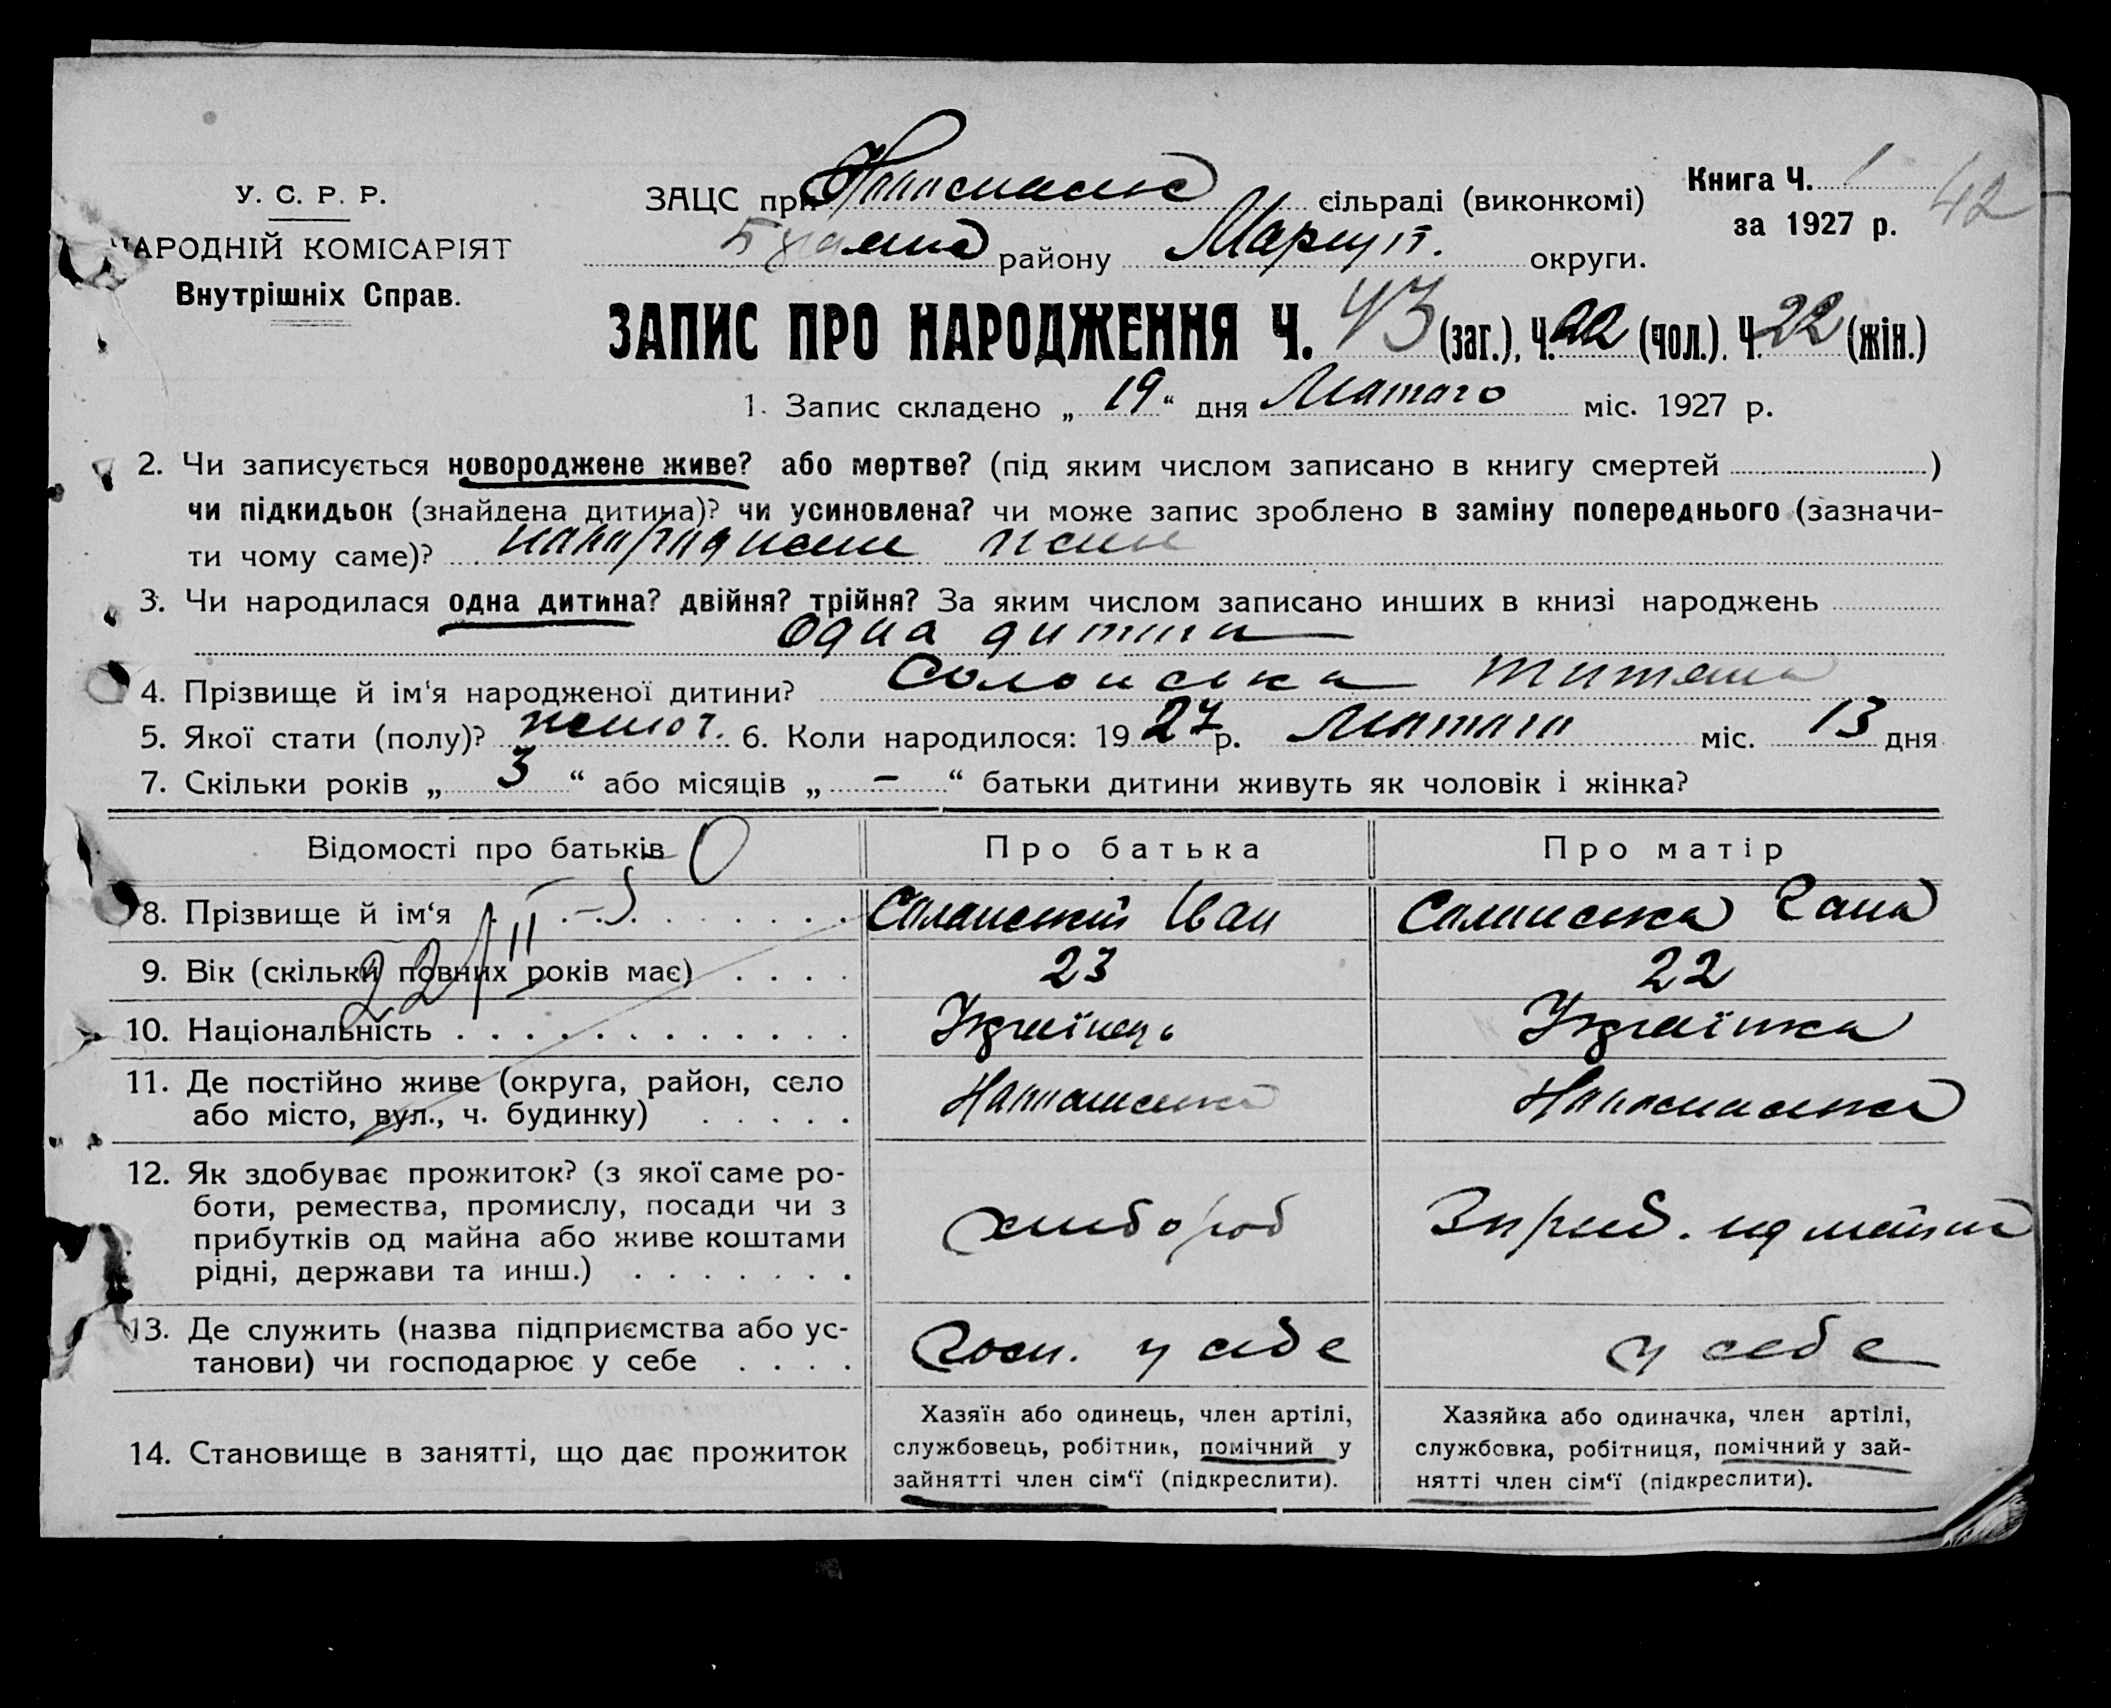 Книга Ч. 1 42
У. С. Р. Р.
ЗАЦС при сільраді (виконкомі)
за 1927 р.
НАРОДНІЙ КОМІСАРІЯТ
району Маріуп. округи.
Внутрішніх Справ.
ЗАПИС ПРО НАРОДЖЕННЯ Ч. 43 (заг.), Ч. 22 (чол.). Ч. 22 (жін.)
1. Запис складено „ 19 “ дня Лютого міс. 1927 р.
2. Чи записується новороджене живе? або мертве? (під яким числом записано в книгу смертей )
чи підкидьок (знайдена дитина)? чи усиновлена? чи може запис зроблено в заміну попереднього (зазначи-
ти чому саме)?
3. Чи народилася одна дитина? двійня? трійня? За яким числом записано инших в книзі народжень
одна дитина
4. Прізвище й ім‘я народженої дитини? Солонська Титяна
5. Якої стати (полу)? жіноч. 6. Коли народилося: 19 27 р. Лютого міс. 13 дня
7. Скільки років „ 3 “ або місяців „ – “ батьки дитини живуть як чоловік і жінка?
Відомості про батьків О Про батька Про матір
8. Прізвище й ім‘я Солонский Іван Солонська Гана
22/II
9. Вік (скільки повних років має) 23 22
10. Національність Українець Українка
11. Де постійно живе (округа, район, село
або місто, вул., ч. будинку)
12. Як здобуває прожиток? (з якої саме ро-
боти, ремества, промислу, посади чи з
прибутків од майна або живе коштами
рідні, держави та инш.) хлібороб
13. Де служить (назва підприємства або ус-
танови) чи господарює у себе Госп. у себе у себе
14. Становище в занятті, що дає прожиток
Хазяїн або одинець, член артілі,
службовець, робітник, помічний у
зайнятті член сім‘ї (підкреслити).
Хазяйка або одиначка, член артілі,
службовка, робітниця, помічний у зай-
нятті член сім‘ї (підкреслити).